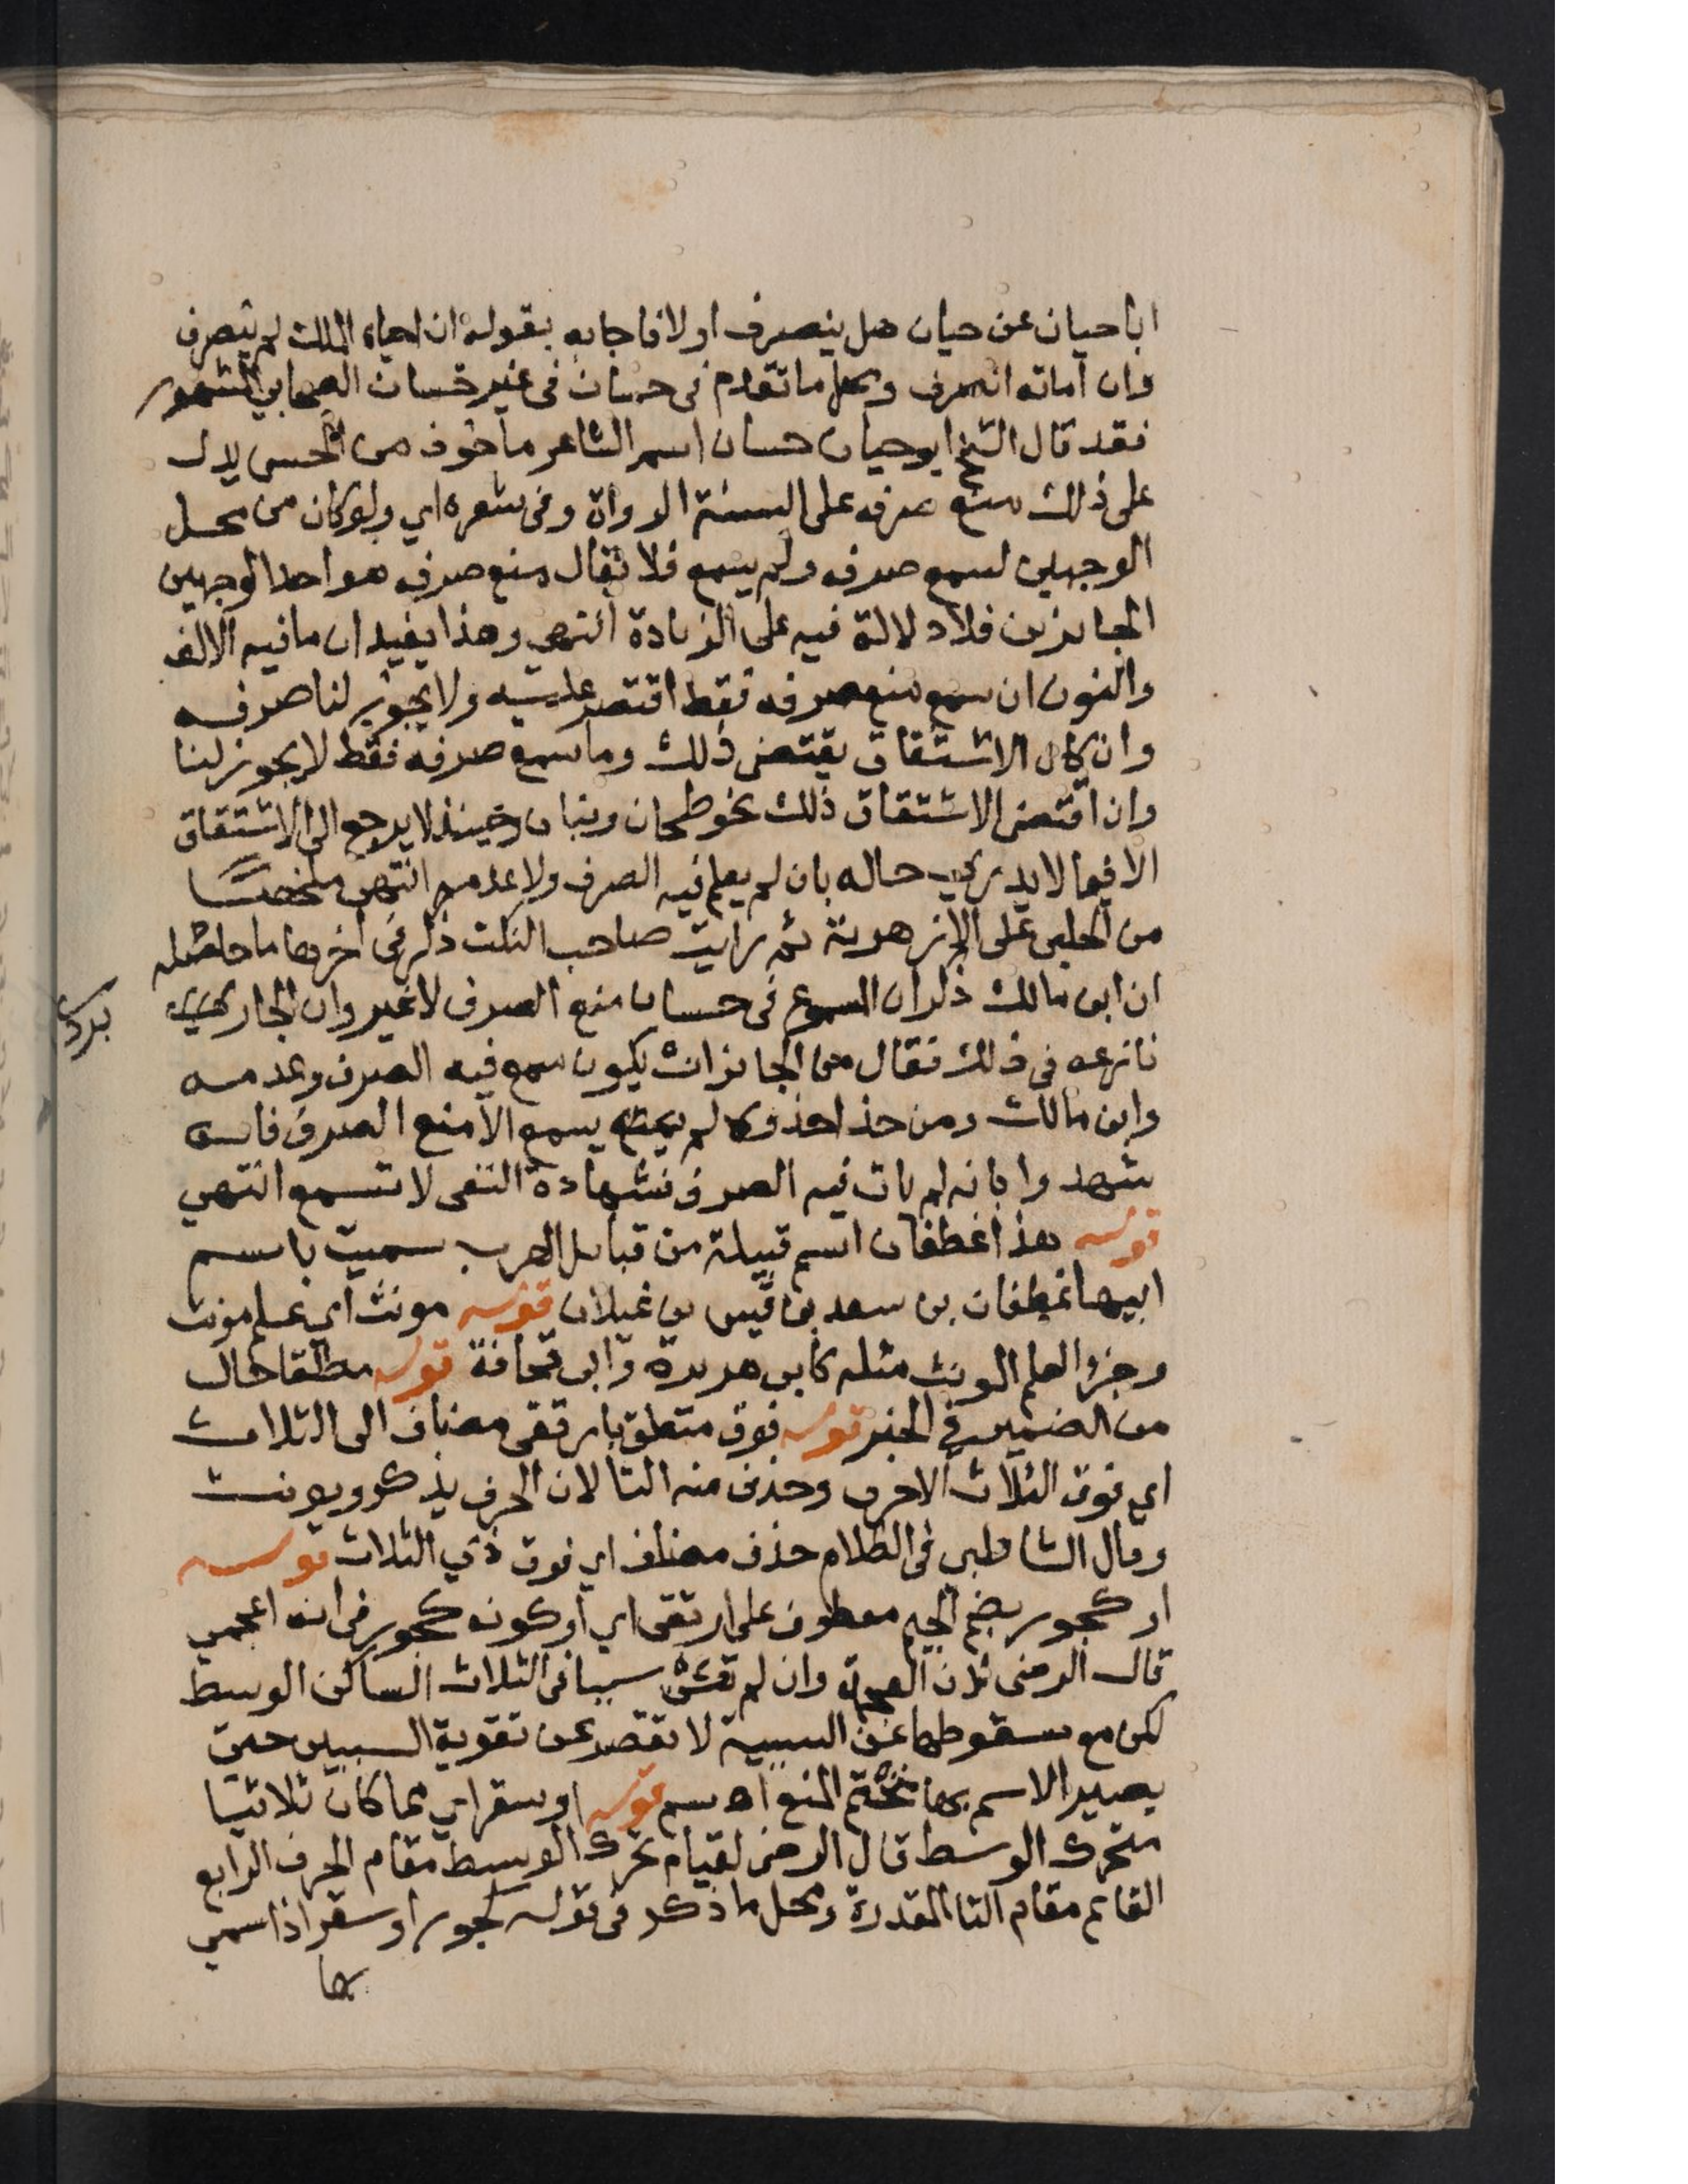 ابا حيان عن حيان هل ينصرف اولا فاجابه بقوله ان احياه الملك لم ينصرف
وان اماته انصرف ومحل ما تقدم فى حسان فى غير حسان الصحابي المشهور
فقد قال الشيخ ابو حيان حسان اسم الشاعر ماخوذ من الحس يدل
على ذلك منع صرفه على السنة الرواة وفى شعره اي ولو كان من محل
الوجهين لسمع صرفه ولم يسمع فلا تقال منع صرفه هو احد الوجهين
الجايزين فلا دلالة فيه على الزيادة انتهى وهذا يفيد ان ما فيه الالف
والنون ان سمع منع صرفه فقط اقتصر عليه ولا يجوز لنا صرفه
وان كان الاشتقاق يقتضى ذلك وما سمع صرفه فقط لا يجوز لنا
وان اقتضى الاشتقاق ذلك نحو طحان وتبان وحينئذ لا يرجع الى الاشتقاق
الا فيما لا يدري حاله بان لم يعلم فيه الصرف ولا عدمه انتهى ملخصًا
من الحلبى على الازهرية ثم رايت صاحب النكت ذكر فى اخرها ما حاصله
ان ابن مالك ذكر ان المسموع فى حسان منع الصرف لا غير وان الجاربردي
نازعه فى ذلك فقال من الجائز ان يكون سمع فيه الصرف وعدمه
وابن مالك ومن حذا حذوه لم يسمع الا منع الصرف فانه
شهدوا بانه لم يات فيه الصرف فشهادة النفى لا تسمع انتهي
قوله هذا غطفان اسم قبيلة من قبائل العرب سميت باسم
ابيها غطفان بن سعد بن قيس بن غيلان قوله مونث اي علم مونث
وجزؤ العلم المونث مثله كابى هريرة وابى قحافة قوله مطلقا حال
من الضمير في الخبر قوله فوق متعلق بارتقى مضاف الى الثلاث
اي فوق الثلاث الاحرف وحذف منه التا لان الحرف يذكر ويونث
وقال الشاطبى فى الكلام حذف مضاف اي فوق ذي الثلاث قوله
او كجور بضم الجيم معطوف على ارتقى اي او كونه كجور فى انه اعجمي
قال الرضى لان العجمة وان لم تكن سببا فى الثلاث الساكن الوسط
لكن مع سقوطها عن السببية لا تقصر عن تقوية السببين حتى
يصير الاسم بها متحتم المنع اه سم قوله او سقر اي مما كان ثلاثيا
متحرك الوسط قال الرضى لقيام تحرك الوسط مقام الحرف الرابع
القايم مقام التا المقدرة ومحل ما ذكر فى قوله كجور او سقر اذا سمي
بها